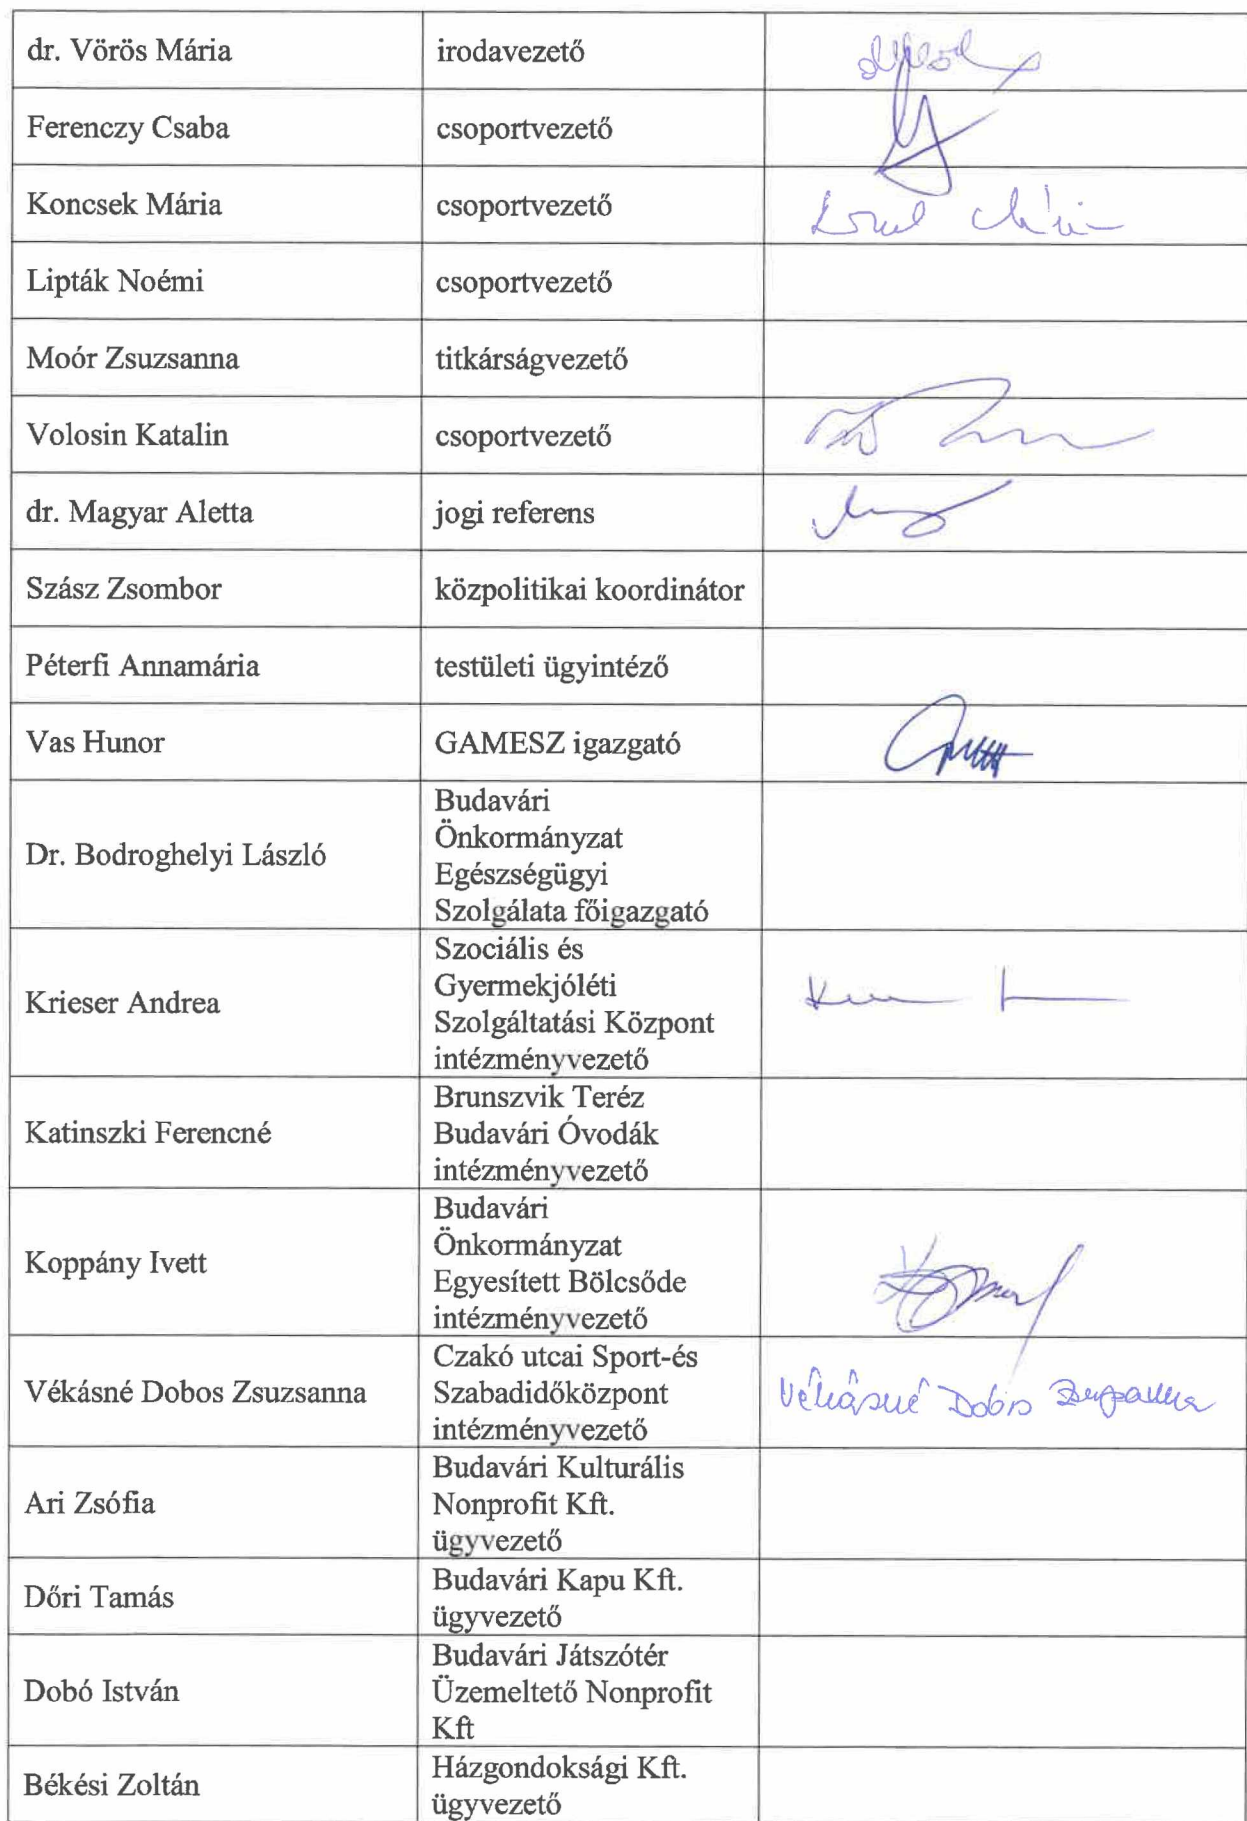 dr. Vörös Mária irodavezető
Ferenczy Csaba csoportvezető
Koncsek Mária csoportvezető
Lipták Noémi csoportvezető
Moór Zsuzsanna titkárságvezető
Volosin Katalin csoportvezető
dr. Magyar Aletta jogi referens
Szász Zsombor közpolitikai koordinátor
Péterfi Annamária testületi ügyintéző
Vas Hunor GAMESZ igazgató
Dr. Bodroghelyi László
Budavári
Önkormányzat
Egészségügyi
Szolgálata főigazgató
Krieser Andrea
Szociális és
Gyermekjóléti
Szolgáltatási Központ
intézményvezető
Katinszki Ferencné
Brunszvik Teréz
Budavári Óvodák
intézményvezető
Koppány Ivett
Budavári
Önkormányzat
Egyesített Bölcsőde
intézményvezető
Végkásné Dobos Zsuzsanna
Czakó utcai Sport-és
Szabadidőközpont
intézményvezető
Vékásné Dobos Zsuzsanna
Ari Zsófia
Budavári Kulturális
Nonprofit Kft.
ügyvezető
Dőri Tamás
Budavári Kapu Kft.
ügyvezető
Dobó István
Budavári Játszótér
Üzemeltető Nonprofit
Kft
Békési Zoltán
Házgondoksági Kft.
ügyvezető